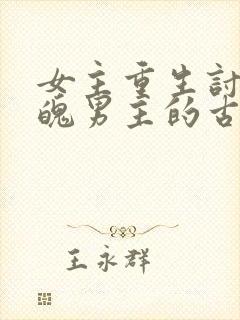 女主重生討
醜男主的古
王永群